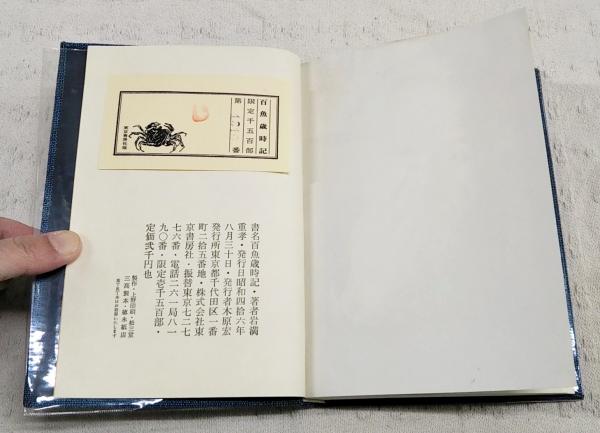 百魚歳時記
限定千五百部
第 番
東京書房社版
書名百魚歳時記・著者岩満
重孝・発行日昭和四拾六年
八月三十日・発行者木原宏
発行所東京都千代田区一番
町二拾五番地・株式会社東
京書房社・振替東京七二七
七六番・電話二六一局八一
九〇番・限定壱千五百部・
定価弐千円也
製作・上野印刷・松三堂
三高製本・徳永紙店